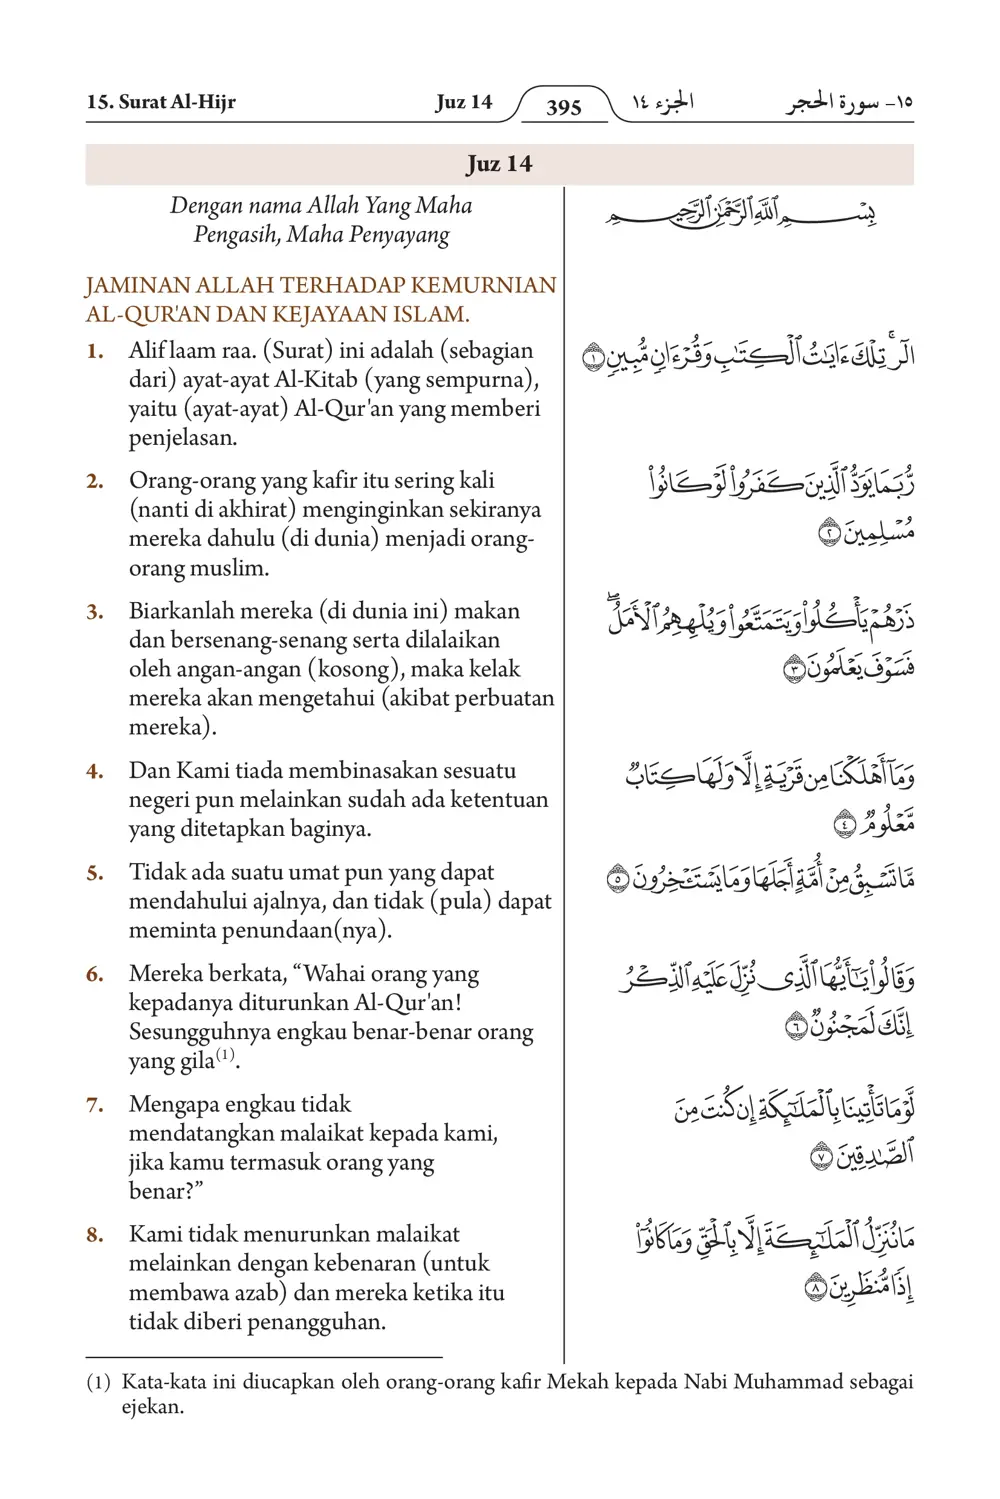 15. Surat Al-Hijr Juz 14 395 الجزء ١٤ ١٥- سورة الحجر
Juz 14
Dengan nama Allah Yang Maha
Pengasih, Maha Penyayang
بِسْمِ ٱللَّهِ ٱلرَّحْمَٰنِ ٱلرَّحِيمِ
JAMINAN ALLAH TERHADAP KEMURNIAN
AL-QUR'AN DAN KEJAYAAN ISLAM.
1. Alif laam raa. (Surat) ini adalah (sebagian
dari) ayat-ayat Al-Kitab (yang sempurna),
yaitu (ayat-ayat) Al-Qur'an yang memberi
penjelasan.
الٓرۚ تِلْكَ ءَايَٰتُ ٱلْكِتَٰبِ وَقُرْءَانٍ مُّبِينٍ ١
2. Orang-orang yang kafir itu sering kali
(nanti di akhirat) menginginkan sekiranya
mereka dahulu (di dunia) menjadi orang-
orang muslim.
رُّبَمَا يَوَدُّ ٱلَّذِينَ كَفَرُوا۟ لَوْ كَانُوا۟
مُسْلِمِينَ ٢
3. Biarkanlah mereka (di dunia ini) makan
dan bersenang-senang serta dilalaikan
oleh angan-angan (kosong), maka kelak
mereka akan mengetahui (akibat perbuatan
mereka).
ذَرْهُمْ يَأْكُلُوا۟ وَيَتَمَتَّعُوا۟ وَيُلْهِهِمُ ٱلْأَمَلُۖ
فَسَوْفَ يَعْلَمُونَ ٣
4. Dan Kami tiada membinasakan sesuatu
negeri pun melainkan sudah ada ketentuan
yang ditetapkan baginya.
وَمَآ أَهْلَكْنَا مِن قَرْيَةٍ إِلَّا وَلَهَا كِتَابٌ
مَّعْلُومٌ ٤
5. Tidak ada suatu umat pun yang dapat
mendahului ajalnya, dan tidak (pula) dapat
meminta penundaan(nya).
مَّا تَسْبِقُ مِنْ أُمَّةٍ أَجَلَهَا وَمَا يَسْتَـْٔخِرُونَ ٥
6. Mereka berkata, “Wahai orang yang
kepadanya diturunkan Al-Qur'an!
Sesungguhnya engkau benar-benar orang
yang gila(1).
وَقَالُوا۟ يَٰٓأَيُّهَا ٱلَّذِى نُزِّلَ عَلَيْهِ ٱلذِّكْرُ
إِنَّكَ لَمَجْنُونٌ ٦
7. Mengapa engkau tidak
mendatangkan malaikat kepada kami,
jika kamu termasuk orang yang
benar?”
لَّوْ مَا تَأْتِينَا بِٱلْمَلَٰٓئِكَةِ إِن كُنتَ مِنَ
ٱلصَّٰدِقِينَ ٧
8. Kami tidak menurunkan malaikat
melainkan dengan kebenaran (untuk
membawa azab) dan mereka ketika itu
tidak diberi penangguhan.
مَا نُنَزِّلُ ٱلْمَلَٰٓئِكَةَ إِلَّا بِٱلْحَقِّ وَمَا كَانُوٓا۟
إِذًا مُّنظَرِينَ ٨
(1) Kata-kata ini diucapkan oleh orang-orang kafir Mekah kepada Nabi Muhammad sebagai
ejekan.